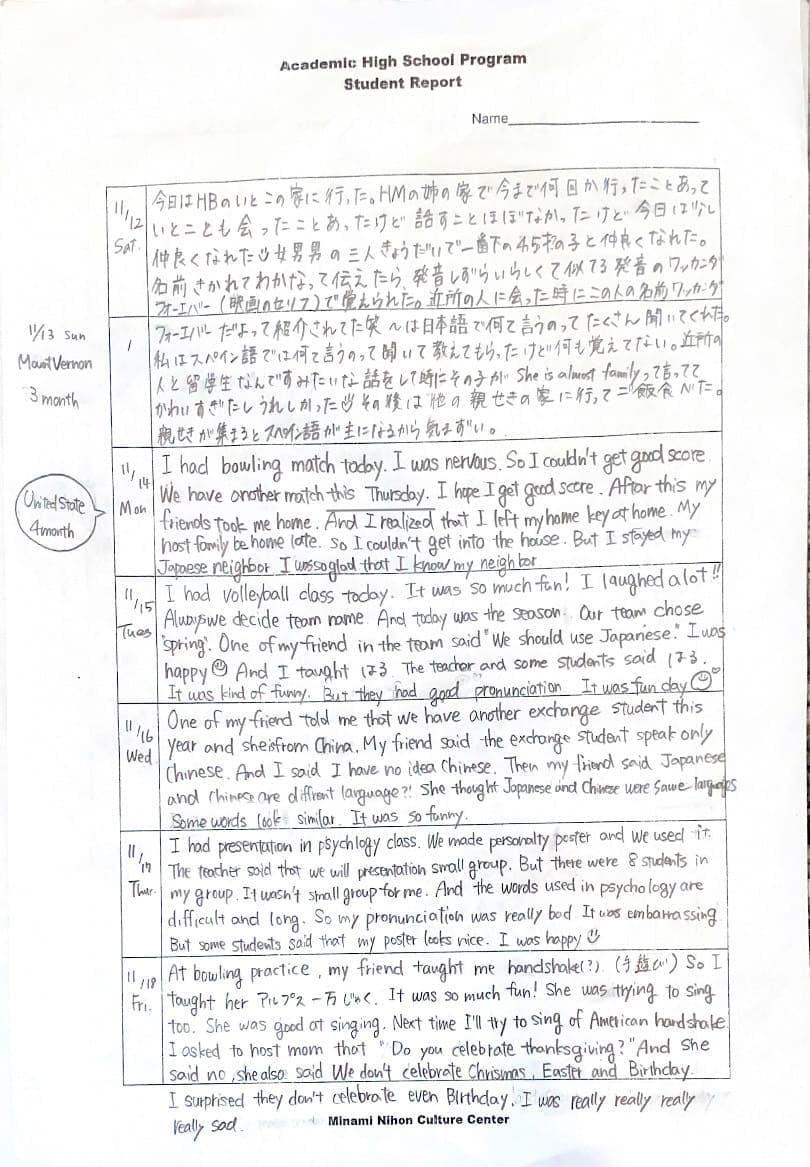 Academic High School Program
Student Report
Name
11/12
Sat.
今日はHBのいとこの家に行った。HMの姉の家で今まで何回か行ったことあって
いとことも会ったことあったけど 話すことほぼなかったけど 今日は少し
仲良くなれた 女男男の三人きょうだいで一番下の4.5才の子と仲良くなれた。
名前きかれてわかなって伝えたら、発音しずらいらしくて似てる発音のワッカンダ
フォーエバー(映画のセリフ)で覚えられた。近所の人に会った時にこの人の名前ワッカンダ
11/13 Sun
Mount Vernon
3 month
フォーエバーだよって紹介されてた笑 〜は日本語で何て言うのってたくさん聞いてくれた。
私はスペイン語では何て言うのって聞いて教えてもらったけど何も覚えてない。近所の
人と留学生なんですみたいな話をして時にその子が She is almost familyって言ってて
かわいすぎたしうれしかった その後は他の親せきの家に行ってご飯食べた。
親せきが集まるとスペイン語が主になるから気まずい。
United State
4 month
11/14
Mon
I had bowling match today. I was nervous. So I couldn't get good score.
We have another match this Thursday. I hope I get good score. After this my
friends took me home. And I realized that I left my home key at home. My
host family be home late. So I couldn't get into the house. But I stayed my
Japaese neighbor. I was so glad that I know my neighbor
11/15
Tues
I had volleyball class today. It was so much fun! I laughed a lot!!
Always we decide team name. And today was the season. Our team chose
'spring'. One of my friend in the team said "We should use Japanese." I was
happy And I taught はる. The teacher and some students said はる.
It was kind of funny. But they had good pronunciation It was fun day
11/16
Wed
One of my friend told me that we have another exchange student this
year and she is from China. My friend said the exchange student speak only
Chinese. And I said I have no idea Chinese. Then my friend said Japanese
and Chinese are diffrent language?! She thought Japanese and Chinese were same languages
Some words look similar. It was so funny.
11/17
Thur.
I had presentation in psychlogy class. We made personalty poster and we used it.
The teacher said that we will presentation small group. But there were 8 students in
my group. It wasn't small group for me. And the words used in psychology are
difficult and long. So my pronunciation was really bad. It was embarrassing
But some students said that my poster looks nice. I was happy
11/18
Fri.
At bowling practice, my friend taught me handshake(?). (手遊び) So I
taught her アルプス一万じゃく. It was so much fun! She was trying to sing
too. She was good at singing. Next time I'll try to sing of American handshake.
I asked to host mom that "Do you celebrate thanksgiving?" And she
said no, she also said We don't celebrate Chrismas, Easter and Birthday.
I surprised they don't celebrate even Birthday. I was really really really
really sad.
Minami Nihon Culture Center